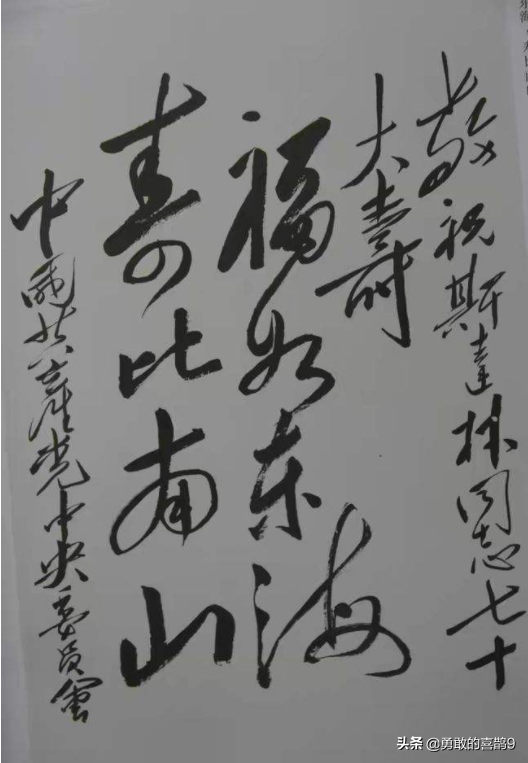 敬祝斯達林同志七十
大壽
福如东海
壽比南山
中國共產党中央委員會
头条 @勇敢的喜鹊9